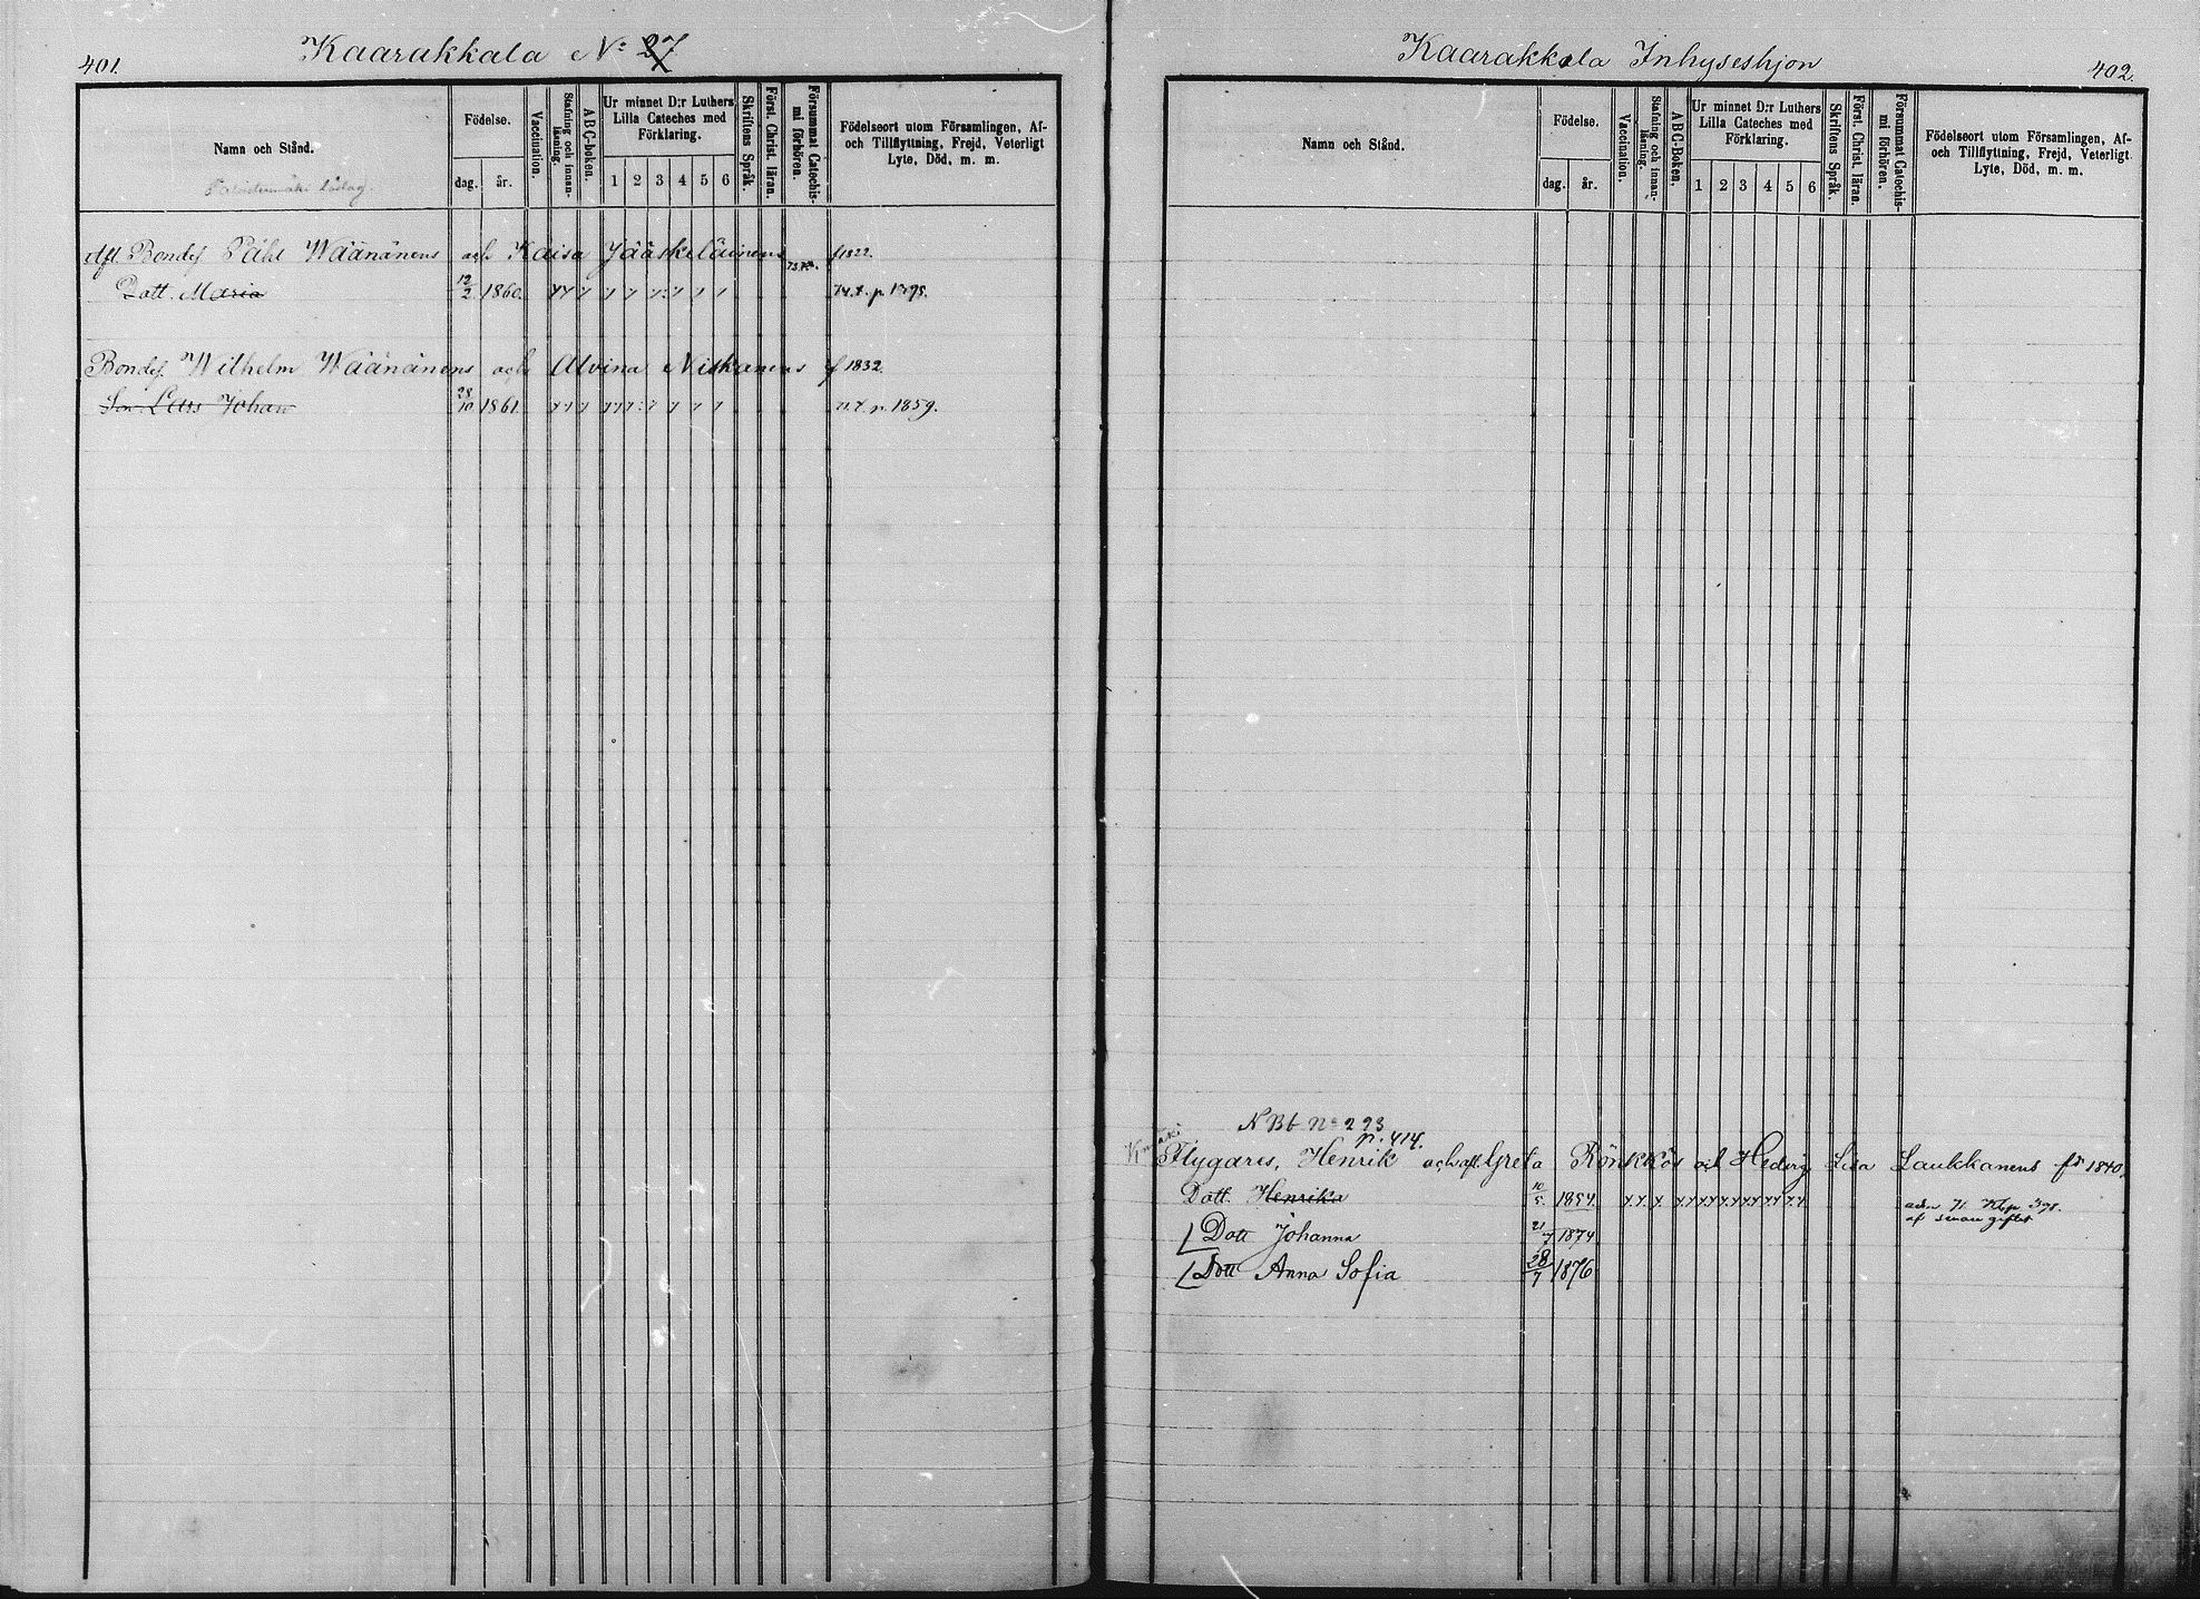 401.
Kaarakkala No 27
Namn och Stånd.
Födelse.
dag.
år.
Vaccination.
Stafning och innan-
läsning.
ABC-boken.
Ur minnet D:r Luthers
Lilla Cateches med
Förklaring.
1 2 3 4 5 6
Skriftens Språk.
Först. Christ. läran.
Försummat Catechis-
mi förhören.
Födelseort utom Församlingen, Af-
och Tillflyttning, Frejd, Veterligt
Lyte, Död, m. m.
Afl. Bondes Påhl Wäänänens och Kaisa Jääskeläinens f 1822.
Dott. Maria 12/2 1860.
Bondes Wilhelm Wäänänens och Alvina Niskanens f 1832.
Son Lars Johan 28/10 1861. p. 1859.
402.
Kaarakkala Inhyseshjon
Namn och Stånd.
Födelse.
dag.
år.
Vaccination.
Stafning och innan-
läsning.
ABC-Boken.
Ur minnet D:r Luthers
Lilla Cateches med
Förklaring.
1 2 3 4 5 6
Skriftens Språk.
Först. Christ. läran.
Försummat Catechis-
mi förhören.
Födelseort utom Församlingen, Af-
och Tillflyttning, Frejd, Veterligt
Lyte, Död, m. m.
N Bb No 293
p. 414.
Flygares, Henrik och afl. Greta Rönkkös och Hedvig Lisa Laukkanens fö 1840.
Dott. Henrika 10/5 1854.
Dott Johanna 21/7 1874
Dott Anna Sofia 28/7 1876